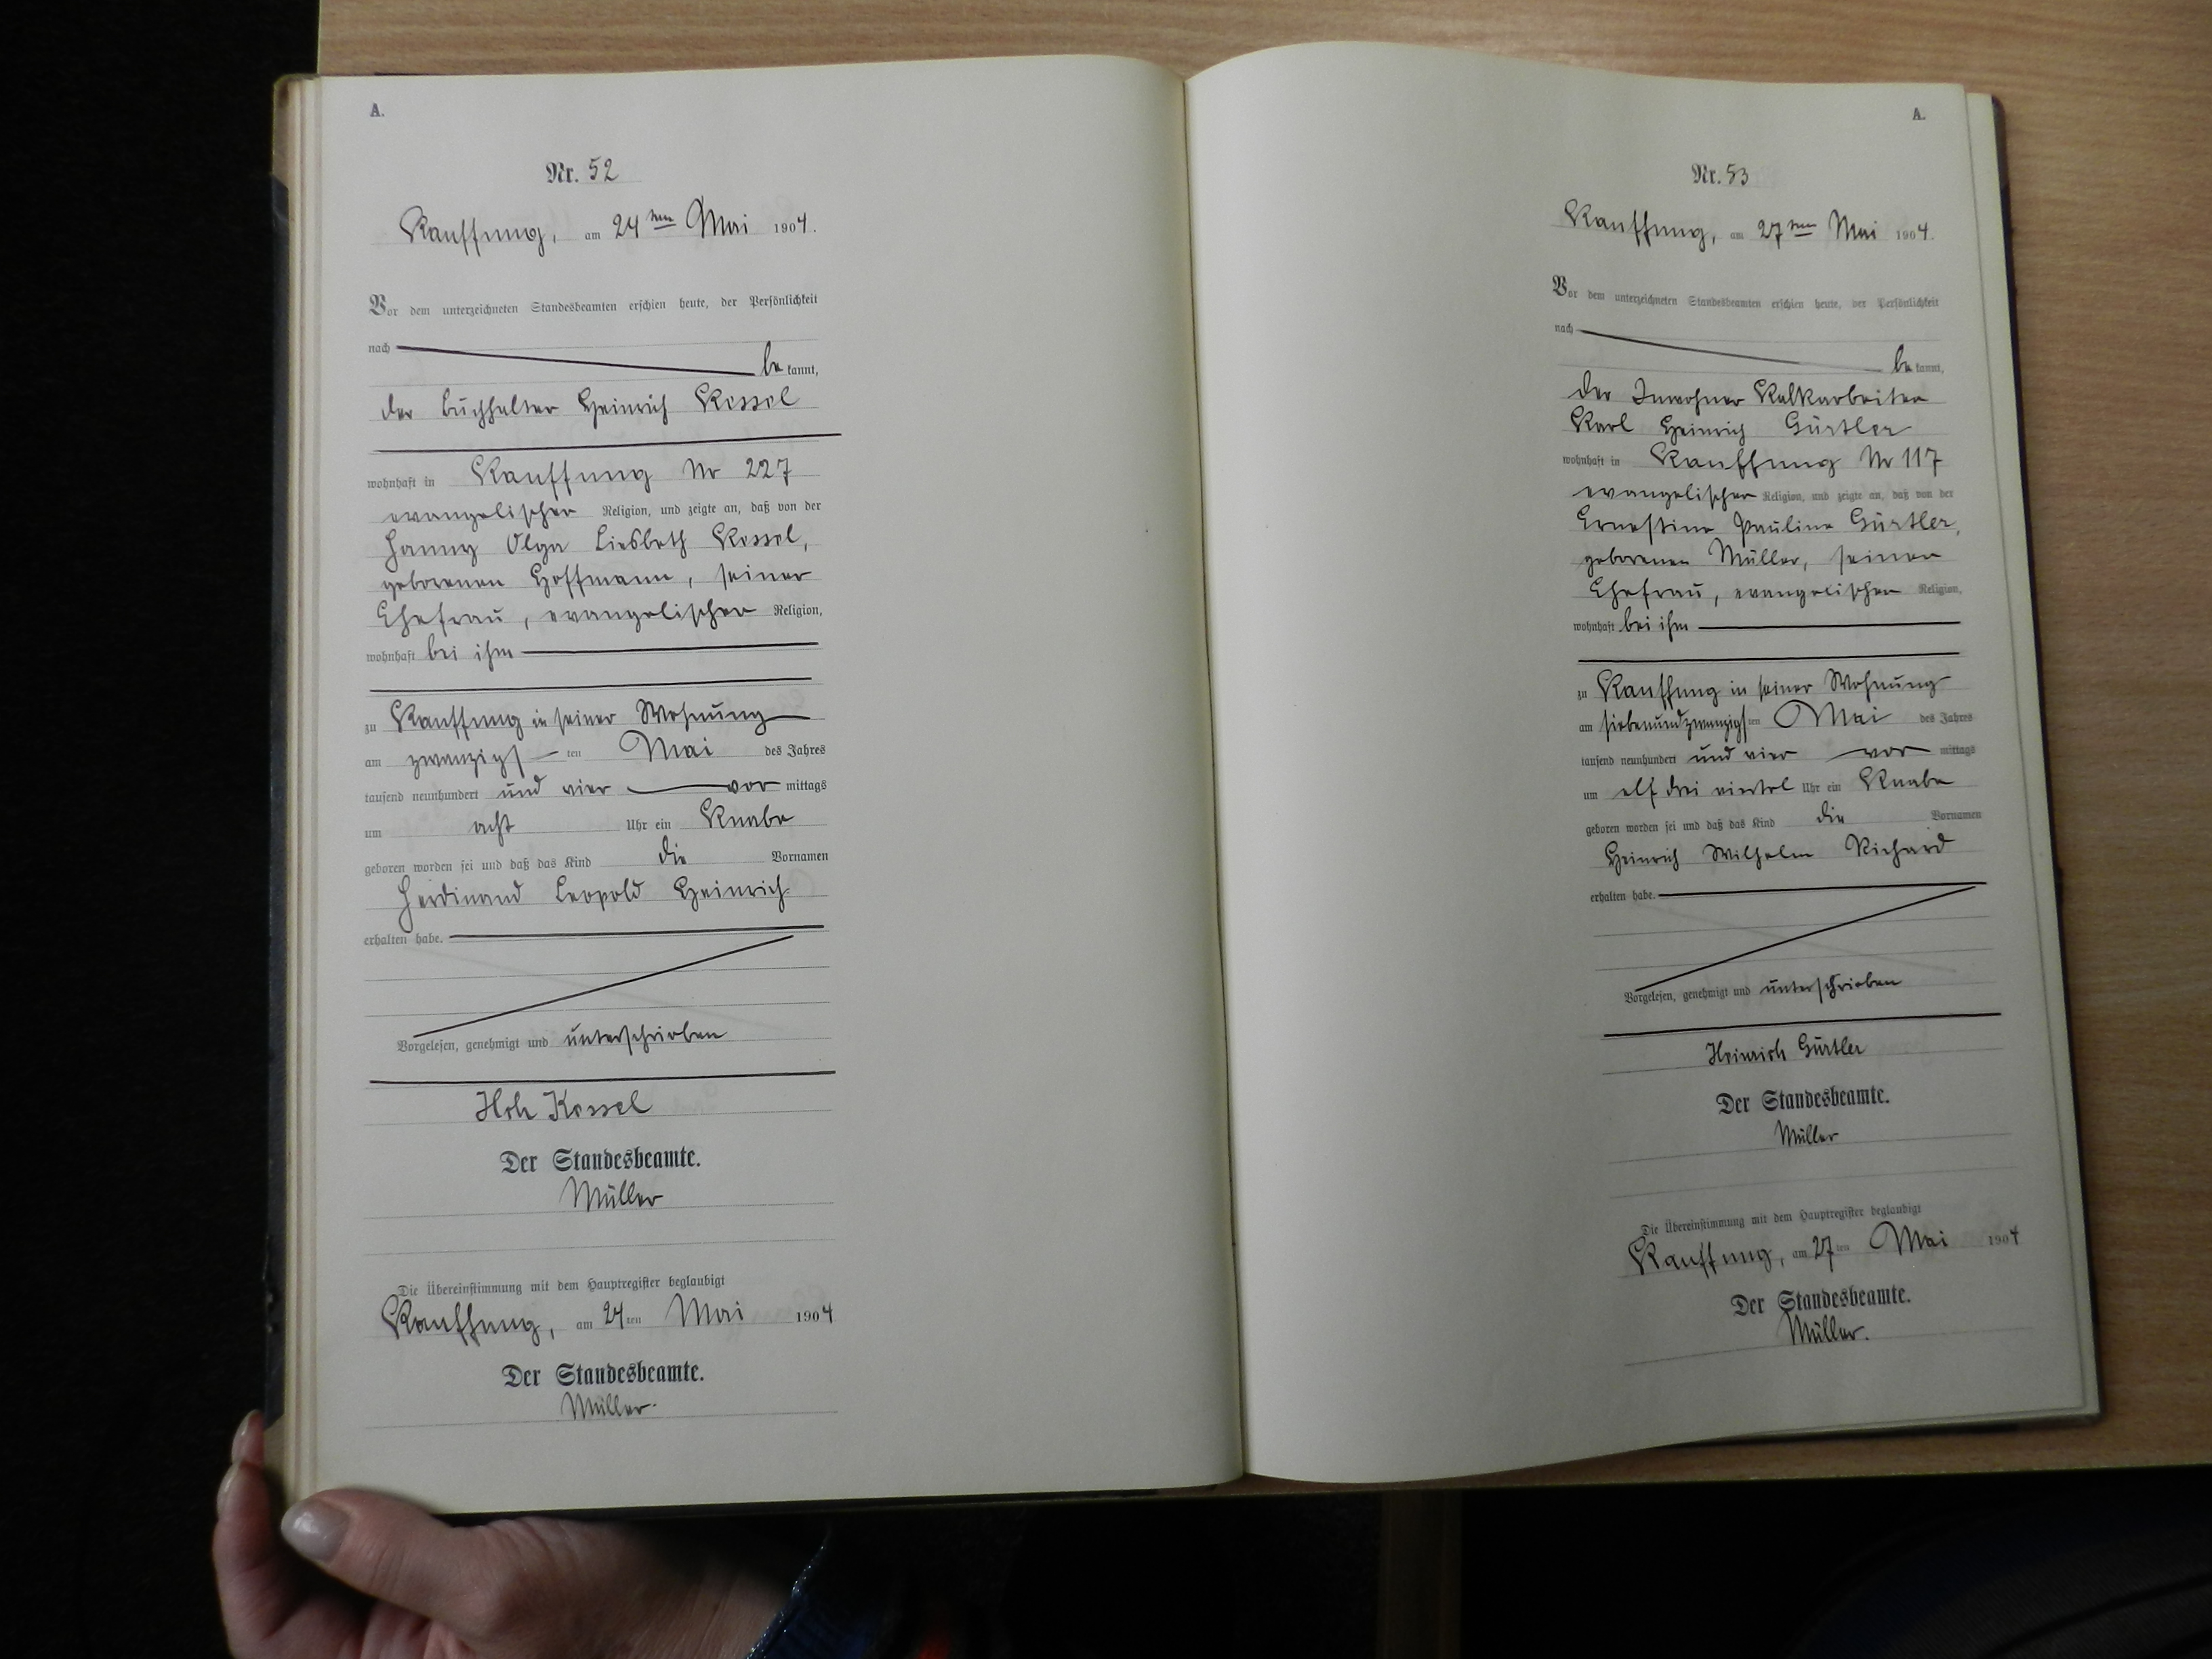 A.
Nr. 52
Kauffung, am 24ten Mai 1904.
Vor dem unterzeichneten Standesbeamten erschien heute, der Persönlichkeit
nach
be kannt,
der Buchhalter Heinrich Kessel
wohnhaft in Kauffung Nr 227
evangelischer Religion, und zeigte an, daß von der
Fanny Olga Liesbeth Kessel,
geborenen Hoffmann, seiner
Ehefrau, evangelischer Religion,
wohnhaft bei ihm
zu Kauffung in seiner Wohnung
am zwanzigsten Mai des Jahres
tausend neunhundert und vier vor mittags
um acht Uhr ein Knabe
geboren worden sei und daß das Kind die Vornamen
Ferdinand Leopold Heinrich
erhalten habe.
Vorgelesen, genehmigt und unterschrieben
Kessel
Der Standesbeamte.
Müller
Die Übereinstimmung mit dem Hauptregister beglaubigt
Kauffung, am 24ten Mai 1904
Der Standesbeamte.
Müller.
A.
Nr. 53
Kauffung, am 27ten Mai 1904.
Vor dem unterzeichneten Standesbeamten erschien heute, der Persönlichkeit
nach
be kannt,
der Inwohner Kalkarbeiter
Karl Heinrich Gürtler
wohnhaft in Kauffung Nr 117
evangelischer Religion, und zeigte an, daß von der
Ernestine Pauline Gürtler,
geborenen Müller, seiner
Ehefrau, evangelischer Religion,
wohnhaft bei ihm
zu Kauffung in seiner Wohnung
am siebenundzwanzigsten Mai des Jahres
tausend neunhundert und vier vor mittags
um elf drei viertel Uhr ein Knabe
geboren worden sei und daß das Kind die Vornamen
Heinrich Wilhelm Richard
erhalten habe.
Vorgelesen, genehmigt und unterschrieben
Heinrich Gürtler
Der Standesbeamte.
Müller
Die Übereinstimmung mit dem Hauptregister beglaubigt
Kauffung, am 27ten Mai 1904
Der Standesbeamte.
Müller.